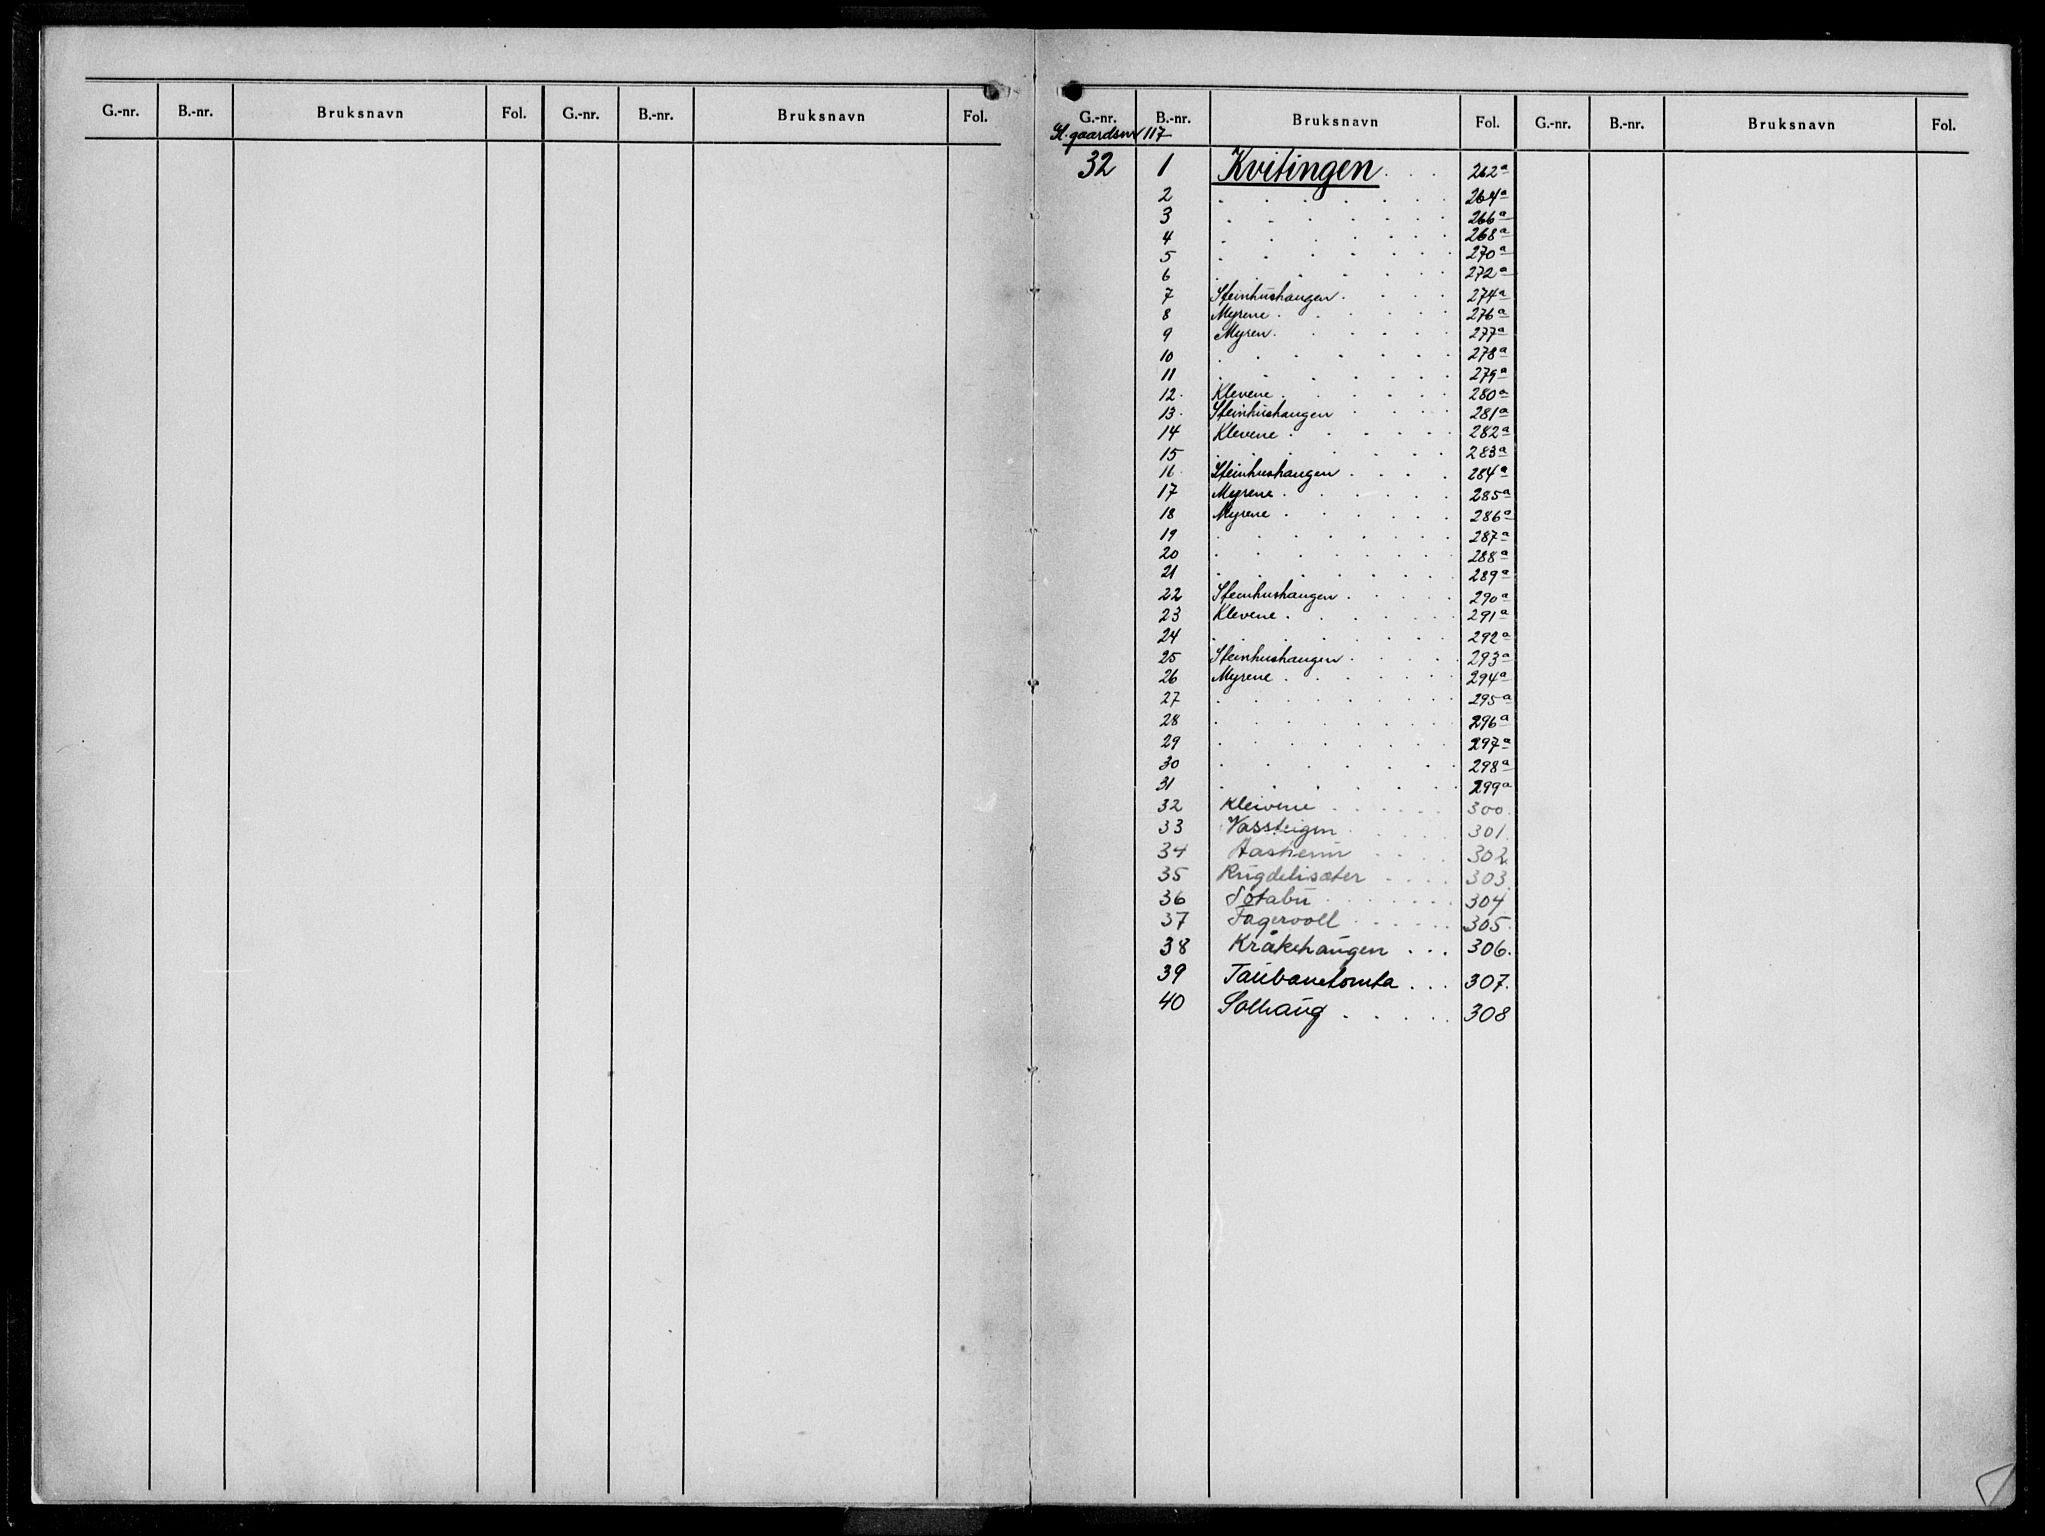 G.-nr. B.-nr. Bruksnavn Fol. G.-nr. B.-nr. Bruksnavn Fol.
G.-nr. B.-nr. Bruksnavn Fol. G.-nr. B.-nr. Bruksnavn Fol.
gaardsnr 117
32 1 Kvitingen . . . 262a
2 . . . . . . . 264a
3 . . . . . . . 266a
4 . . . . . . . 268a
5 . . . . . . . 270a
6 . . . . . . . 272a
7 Steinhushaugen . . . . 274a
8 Myrene . . . . . . 276a
9 Myren . . . . . . 277a
10 . . . . . . . 278a
11 . . . . . . . 279a
12. Klevene . . . . . . 280a
13. Steinhushaugen . . . . 281a
14 Klevene . . . . . . 282a
15 . . . . . . . 283a
16. Steinhushaugen . . . . 284a
17 Myrene . . . . . . 285a
18 Myrene . . . . . . 286a
19 . . . . . . . 287a
20 . . . . . . . 288a
21 . . . . . . . 289a
22 Steinhushaugen . . . . 290a
23 Klevene . . . . . . 291a
24 . . . . . . . 292a
25 Steinhushaugen . . . . 293a
26 Myrene . . . . . . 294a
27 . . . . . . . 295a
28 . . . . . . . 296a
29 . . . . . . . 297a
30 . . . . . . . 298a
31 . . . . . . . 299a
32 Kleivene . . . . . 300.
33 Vassteigen . . . . . 301.
34 Aasheim . . . . 302.
35 Rugdelisæter . . . . 303.
36 Sótabu . . . . . . 304
37 Fagervoll . . . . . 305.
38 Kråkehaugen . . . 306.
39 Taubanetomta . . . 307.
40 Solhaug . . . . . 308